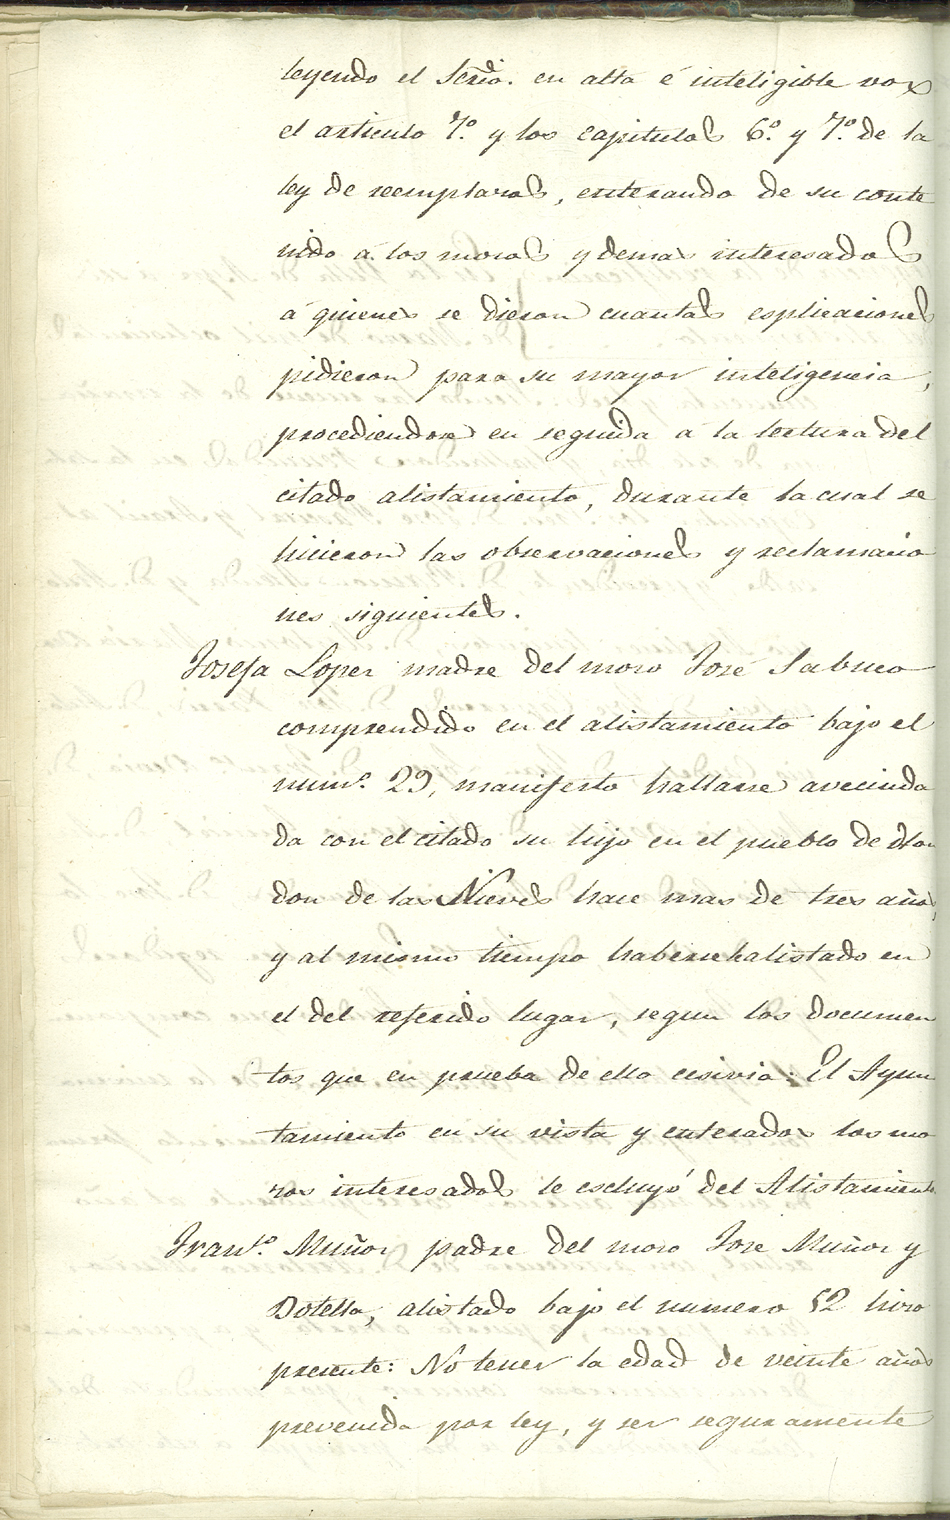 leyendo el Scrio. en alta é inteligible vox
el articulo 7.º y los capitulos 6.º y 7.º de la
ley de reemplazos, enterando de su conte
nido á los mozos y demas interesados
á quienes se dieron cuantas esplicaciones
pidieron para su mayor inteligencia,
procediendose en seguida á la lectura del
citado alistamiento, durante la cual se
hicieron las observaciones y reclamacio
nes siguientes.
Josefa Lopez madre del mozo José Sabuco
comprendido en el alistamiento bajo el
num.º 29, manifesto hallarse avecinda
da con el citado su hijo en el pueblo de Hon
don de las Nieves hace mas de tres años,
y al mismo tiempo haberse halistado en
el del referido lugar, segun los documen
tos que en prueba de ello ecsivia: El Ayun
tamiento en su vista y enterados los mo
zos interesados le escluyó del Alistamiento
Fran.co Muñoz padre del mozo Jose Muñoz y
Botella, alistado bajo el numero 52 hizo
presente: No tener la edad de veinte años
prevenida por ley, y ser seguramente